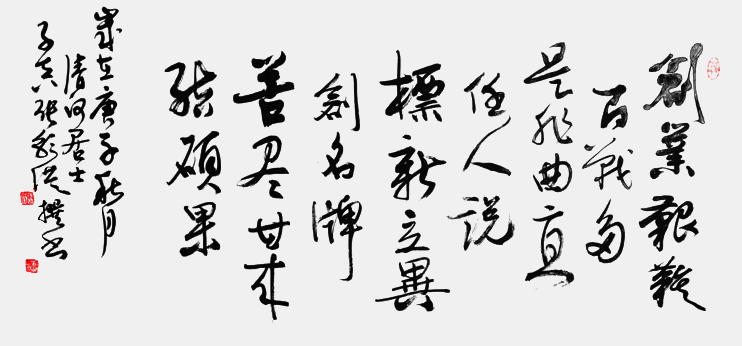 創業艱難
百戰多
是非曲直
任人説
標新立異
創名牌
苦尽甘来
結碩果
歲在庚子秋月
清河居士
子真張彩選撰书